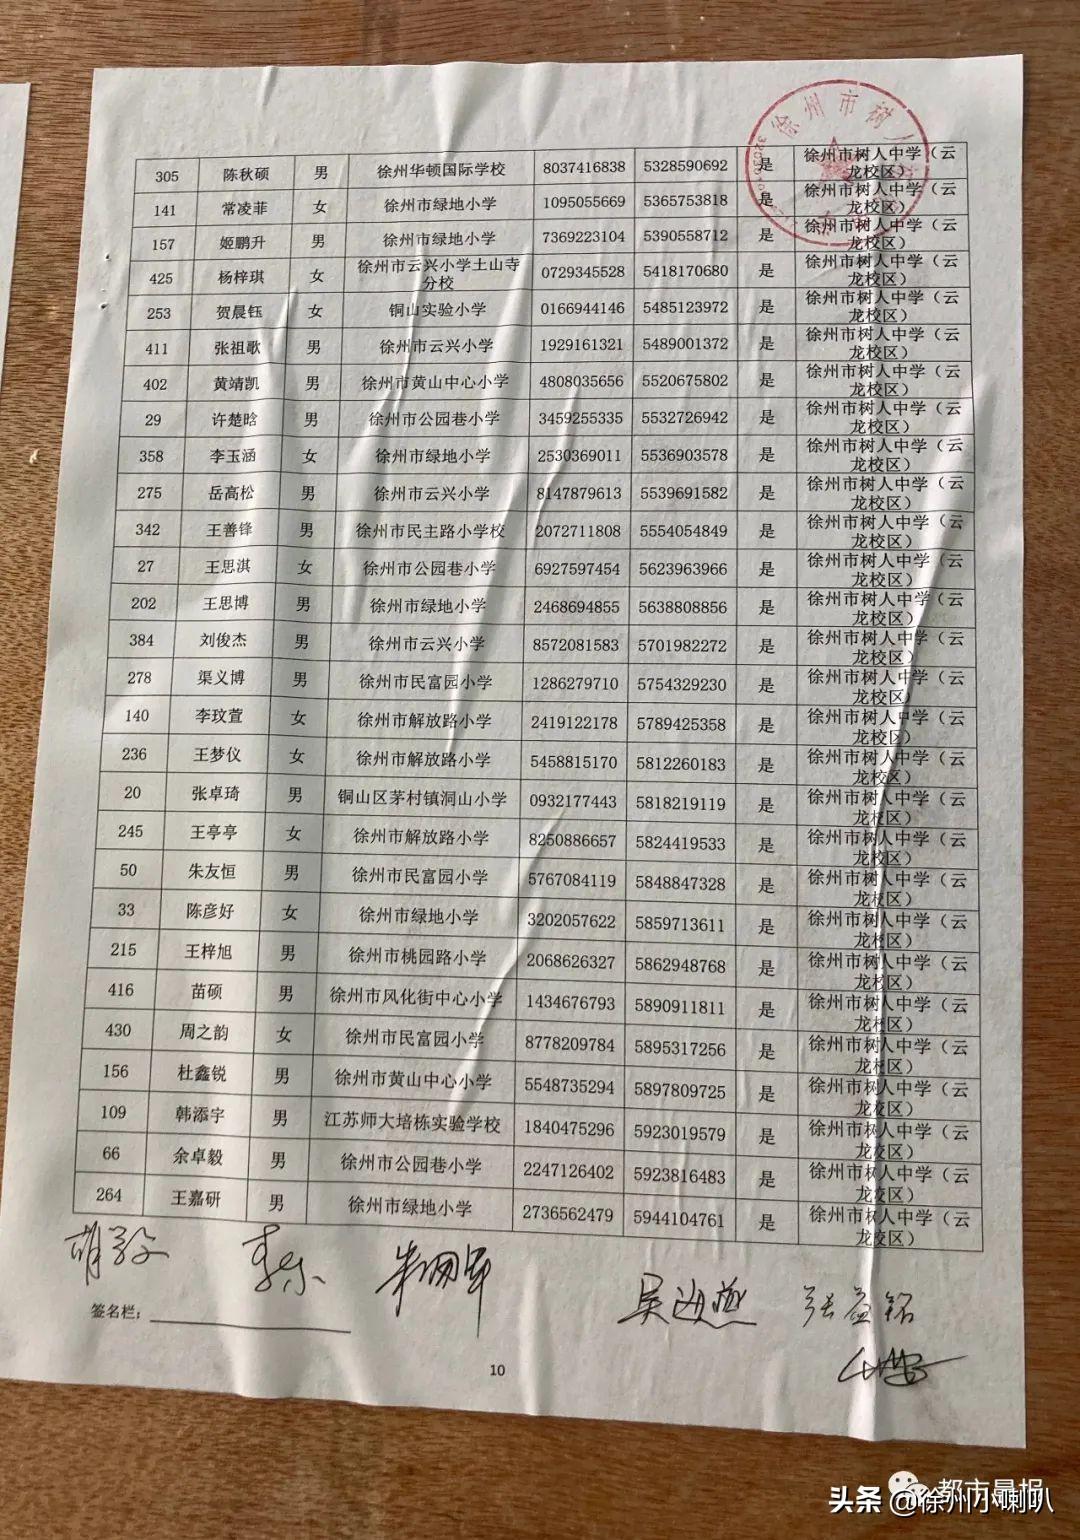 徐州市树人
305 陈秋硕 男 徐州华顿国际学校 8037416838 5328590692 是 徐州市树人中学（云龙校区）
141 常凌菲 女 徐州市绿地小学 1095055669 5365753818 是 徐州市树人中学（云龙校区）
157 姬鹏升 男 徐州市绿地小学 7369223104 5390558712 是 徐州市树人中学（云龙校区）
425 杨梓琪 女 徐州市云兴小学土山寺分校 0729345528 5418170680 是 徐州市树人中学（云龙校区）
253 贺晨钰 女 铜山实验小学 0166944146 5485123972 是 徐州市树人中学（云龙校区）
411 张祖歌 男 徐州市云兴小学 1929161321 5489001372 是 徐州市树人中学（云龙校区）
402 黄靖凯 男 徐州市黄山中心小学 4808035656 5520675802 是 徐州市树人中学（云龙校区）
29 许楚晗 男 徐州市公园巷小学 3459255335 5532726942 是 徐州市树人中学（云龙校区）
358 李玉涵 女 徐州市绿地小学 2530369011 5536903578 是 徐州市树人中学（云龙校区）
275 岳高松 男 徐州市云兴小学 8147879613 5539691582 是 徐州市树人中学（云龙校区）
342 王善锋 男 徐州市民主路小学校 2072711808 5554054849 是 徐州市树人中学（云龙校区）
27 王思淇 女 徐州市公园巷小学 6927597454 5623963966 是 徐州市树人中学（云龙校区）
202 王思博 男 徐州市绿地小学 2468694855 5638808856 是 徐州市树人中学（云龙校区）
384 刘俊杰 男 徐州市云兴小学 8572081583 5701982272 是 徐州市树人中学（云龙校区）
278 渠义博 男 徐州市民富园小学 1286279710 5754329230 是 徐州市树人中学（云龙校区）
140 李玟萱 女 徐州市解放路小学 2419122178 5789425358 是 徐州市树人中学（云龙校区）
236 王梦仪 女 徐州市解放路小学 5458815170 5812260183 是 徐州市树人中学（云龙校区）
20 张卓琦 男 铜山区茅村镇洞山小学 0932177443 5818219119 是 徐州市树人中学（云龙校区）
245 王亭亭 女 徐州市解放路小学 8250886657 5824419533 是 徐州市树人中学（云龙校区）
50 朱友恒 男 徐州市民富园小学 5767084119 5848847328 是 徐州市树人中学（云龙校区）
33 陈彦好 女 徐州市绿地小学 3202057622 5859713611 是 徐州市树人中学（云龙校区）
215 王梓旭 男 徐州市桃园路小学 2068626327 5862948768 是 徐州市树人中学（云龙校区）
416 苗硕 男 徐州市风化街中心小学 1434676793 5890911811 是 徐州市树人中学（云龙校区）
430 周之韵 女 徐州市民富园小学 8778209784 5895317256 是 徐州市树人中学（云龙校区）
156 杜鑫锐 男 徐州市黄山中心小学 5548735294 5897809725 是 徐州市树人中学（云龙校区）
109 韩添宇 男 江苏师大培栋实验学校 1840475296 5923019579 是 徐州市树人中学（云龙校区）
66 余卓毅 男 徐州市公园巷小学 2247126402 5923816483 是 徐州市树人中学（云龙校区）
264 王嘉研 男 徐州市绿地小学 2736562479 5944104761 是 徐州市树人中学（云龙校区）
张益铭
签名栏：
10
都市晨报
头条 @徐州小喇叭